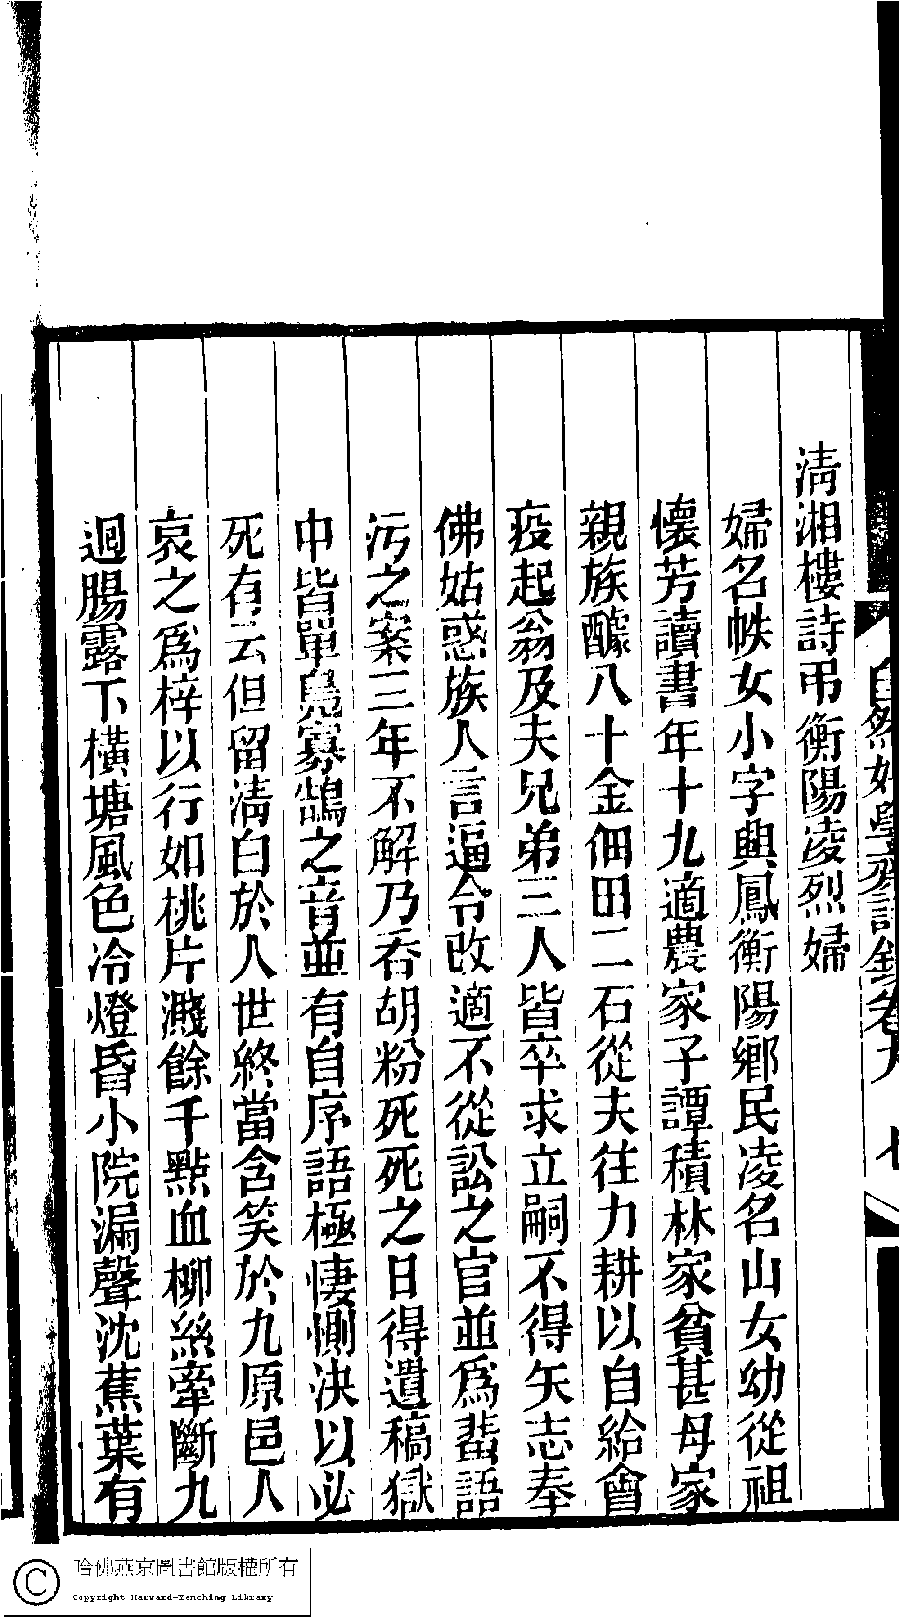 自然好學齋詩鈔卷九 七
清湘樓詩弔衡陽凌烈婦
婦名帙女小字興鳳衡陽鄉民凌名山女幼從祖
懷芳讀書年十九適農家子譚積林家貧甚母家
親族醵八十金佃田二石從夫往力耕以自給會
疫起翁及夫兄弟三人皆卒求立嗣不得矢志奉
佛姑惑族人言逼令改適不從訟之官並爲蜚語
污之案三年不解乃吞胡粉死死之日得遺稿獄
中皆單鳧寡鵠之音並有自序語極悽惻決以必
死有云但留清白於人世終當含笑於九原邑人
哀之爲梓以行如桃片濺餘千點血柳絲牽斷九
迴腸露下橫塘風色冷燈昏小院漏聲沈蕉葉有
哈佛燕京圖書館版權所有
Copyright Harvard-Yenching Library